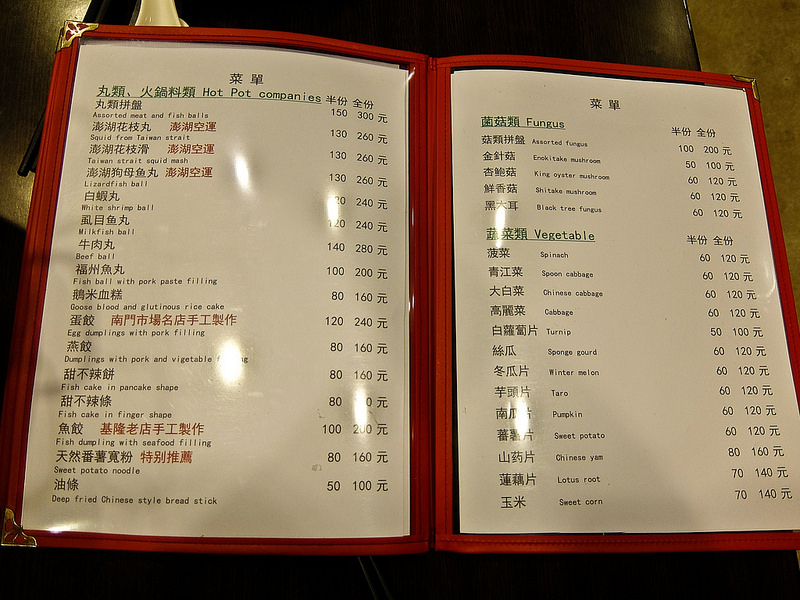 菜單
丸類、火鍋料類 Hot Pot companies 半份 全份
丸類拼盤 150 300 元
Assorted meat and fish balls
澎湖花枝丸 澎湖空運 130 260 元
Squid from Taiwan strait
澎湖花枝滑 澎湖空運 130 260 元
Taiwan strait squid mash
澎湖狗母魚丸 澎湖空運 130 260 元
Lizardfish ball
白蝦丸 240 元
White shrimp ball
虱目魚丸 240 元
Milkfish ball
牛肉丸 140 280 元
Beef ball
福州魚丸 100 200 元
Fish ball with pork paste filling
鵝米血糕 80 160 元
Goose blood and glutinous rice cake
蛋餃 南門市場名店手工製作 120 240 元
Egg dumplings with pork filling
燕餃 80 160 元
Dumplings with pork and vegetable
甜不辣餅 80 160 元
Fish cake in pancake shape
甜不辣條 80 元
Fish cake in finger shape
魚餃 基隆老店手工製作 100 200 元
Fish dumpling with seafood filling
天然番薯寬粉 特別推薦 80 160 元
Sweet potato noodle
油條 50 100 元
Deep fried Chinese style bread stick
菜單
菌菇類 Fungus 半份 全份
菇類拼盤 Assorted fungus 100 200 元
金針菇 Enokitake mushroom 50 100 元
杏鮑菇 King oyster mushroom 60 120 元
鮮香菇 Shitake mushroom 60 120 元
黑木耳 Black tree fungus 60 120 元
蔬菜類 Vegetable 半份 全份
菠菜 Spinach 60 120 元
青江菜 Spoon cabbage 60 120 元
大白菜 Chinese cabbage 60 120 元
高麗菜 Cabbage 60 120 元
白蘿蔔片 Turnip 50 100 元
絲瓜 Sponge gourd 60 120 元
冬瓜片 Winter melon 60 120 元
芋頭片 Taro 60 120 元
南瓜片 Pumpkin 60 120 元
蕃薯片 Sweet potato 60 120 元
山药片 Chinese yam 80 160 元
蓮藕片 Lotus root 70 140 元
玉米 Sweet corn 70 140 元